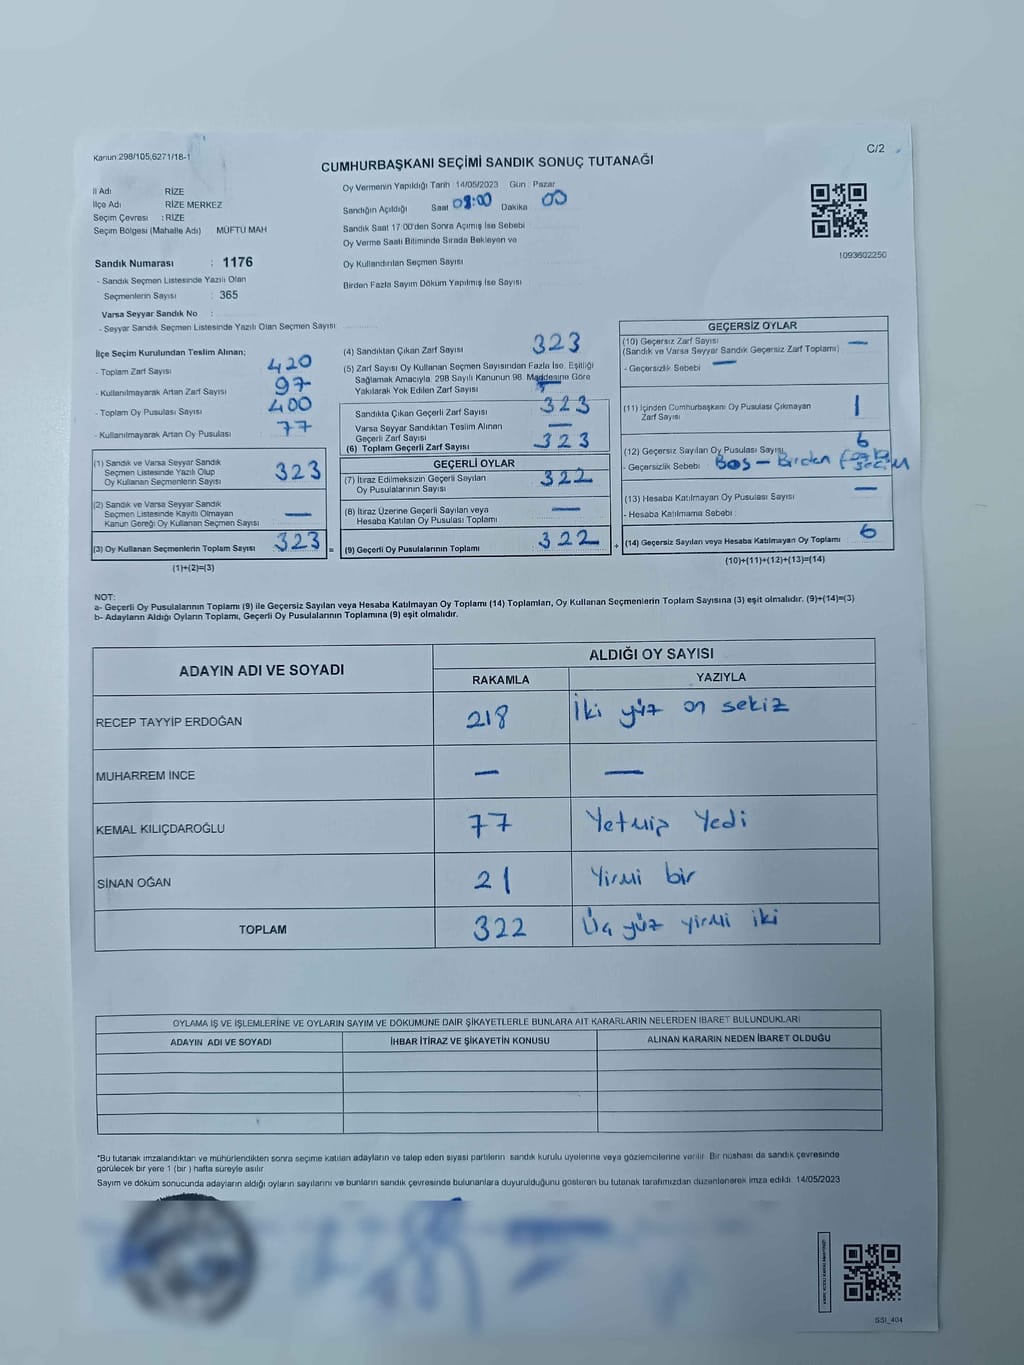 Kanun:298/105,6271/18-1
C/2
CUMHURBAŞKANI SEÇİMİ SANDIK SONUÇ TUTANAĞI
İl Adı RİZE
İlçe Adı RİZE MERKEZ
Seçim Çevresi : RİZE
Seçim Bölgesi (Mahalle Adı) MÜFTÜ MAH
Sandık Numarası : 1176
- Sandık Seçmen Listesinde Yazılı Olan
Seçmenlerin Sayısı : 365
Varsa Seyyar Sandık No :
- Seyyar Sandık Seçmen Listesinde Yazılı Olan Seçmen Sayısı
Oy Vermenin Yapıldığı Tarih 14/05/2023 Gün : Pazar
Sandığın Açıldığı Saat 08:00 Dakika 00
Sandık Saat 17:00'den Sonra Açımış İse Sebebi
Oy Verme Saati Bitiminde Sırada Bekleyen ve
Oy Kullandırılan Seçmen Sayısı
Birden Fazla Sayım Döküm Yapılmış İse Sayısı
1093602250
İlçe Seçim Kurulundan Teslim Alınan;
- Toplam Zarf Sayısı 420
- Kullanılmayarak Artan Zarf Sayısı 97
- Toplam Oy Pusulası Sayısı 400
- Kullanılmayarak Artan Oy Pusulası 77
(1) Sandık ve Varsa Seyyar Sandık
Seçmen Listesinde Yazılı Olup
Oy Kullanan Seçmenlerin Sayısı 323
(2) Sandık ve Varsa Seyyar Sandık
Seçmen Listesinde Kayıtlı Olmayan
Kanun Gereği Oy Kullanan Seçmen Sayısı —
(3) Oy Kullanan Seçmenlerin Toplam Sayısı 323 =
(1)+(2)=(3)
(4) Sandıktan Çıkan Zarf Sayısı 323
(5) Zarf Sayısı Oy Kullanan Seçmen Sayısından Fazla İse, Eşitliği
Sağlamak Amacıyla, 298 Sayılı Kanunun 98. Maddesine Göre
Yakılarak Yok Edilen Zarf Sayısı
Sandıkta Çıkan Geçerli Zarf Sayısı 323
Varsa Seyyar Sandıktan Teslim Alınan
Geçerli Zarf Sayısı —
(6) Toplam Geçerli Zarf Sayısı 323
GEÇERLİ OYLAR
(7) İtiraz Edilmeksizin Geçerli Sayılan
Oy Pusulalarının Sayısı 322
(8) İtiraz Üzerine Geçerli Sayılan veya
Hesaba Katılan Oy Pusulası Toplamı —
(9) Geçerli Oy Pusulalarının Toplamı 322 +
GEÇERSİZ OYLAR
(10) Geçersiz Zarf Sayısı
(Sandık ve Varsa Seyyar Sandık Geçersiz Zarf Toplamı) —
- Geçersizlik Sebebi : —
(11) İçinden Cumhurbaşkanı Oy Pusulası Çıkmayan
Zarf Sayısı 1
(12) Geçersiz Sayılan Oy Pusulası Sayısı 6
- Geçersizlik Sebebi : Boş – Birden fazla seçim
(13) Hesaba Katılmayan Oy Pusulası Sayısı —
- Hesaba Katılmama Sebebi :
(14) Geçersiz Sayılan veya Hesaba Katılmayan Oy Toplamı 6
(10)+(11)+(12)+(13)=(14)
NOT:
a- Geçerli Oy Pusulalarının Toplamı (9) ile Geçersiz Sayılan veya Hesaba Katılmayan Oy Toplamı (14) Toplamları, Oy Kullanan Seçmenlerin Toplam Sayısına (3) eşit olmalıdır. (9)+(14)=(3)
b- Adayların Aldığı Oyların Toplamı, Geçerli Oy Pusulalarının Toplamına (9) eşit olmalıdır.
ADAYIN ADI VE SOYADI ALDIĞI OY SAYISI
RAKAMLA YAZIYLA
RECEP TAYYİP ERDOĞAN 218 İki yüz on sekiz
MUHARREM İNCE — —
KEMAL KILIÇDAROĞLU 77 Yetmiş Yedi
SİNAN OĞAN 21 Yirmi bir
TOPLAM 322 Üç yüz yirmi iki
OYLAMA İŞ VE İŞLEMLERİNE VE OYLARIN SAYIM VE DÖKÜMÜNE DAİR ŞİKAYETLERLE BUNLARA AİT KARARLARIN NELERDEN İBARET BULUNDUKLARI
ADAYIN ADI VE SOYADI İHBAR İTİRAZ VE ŞİKAYETİN KONUSU ALINAN KARARIN NEDEN İBARET OLDUĞU
*Bu tutanak imzalandıktan ve mühürlendikten sonra seçime katılan adayların ve talep eden siyasi partilerin sandık kurulu üyelerine veya gözlemcilerine verilir. Bir nüshası da sandık çevresinde
görülecek bir yere 1 (bir ) hafta süreyle asılır
Sayım ve döküm sonucunda adayların aldığı oyların sayılarını ve bunların sandık çevresinde bulunanlara duyurulduğunu gösteren bu tutanak tarafımızdan düzenlenerek imza edildi. 14/05/2023
SSI_404